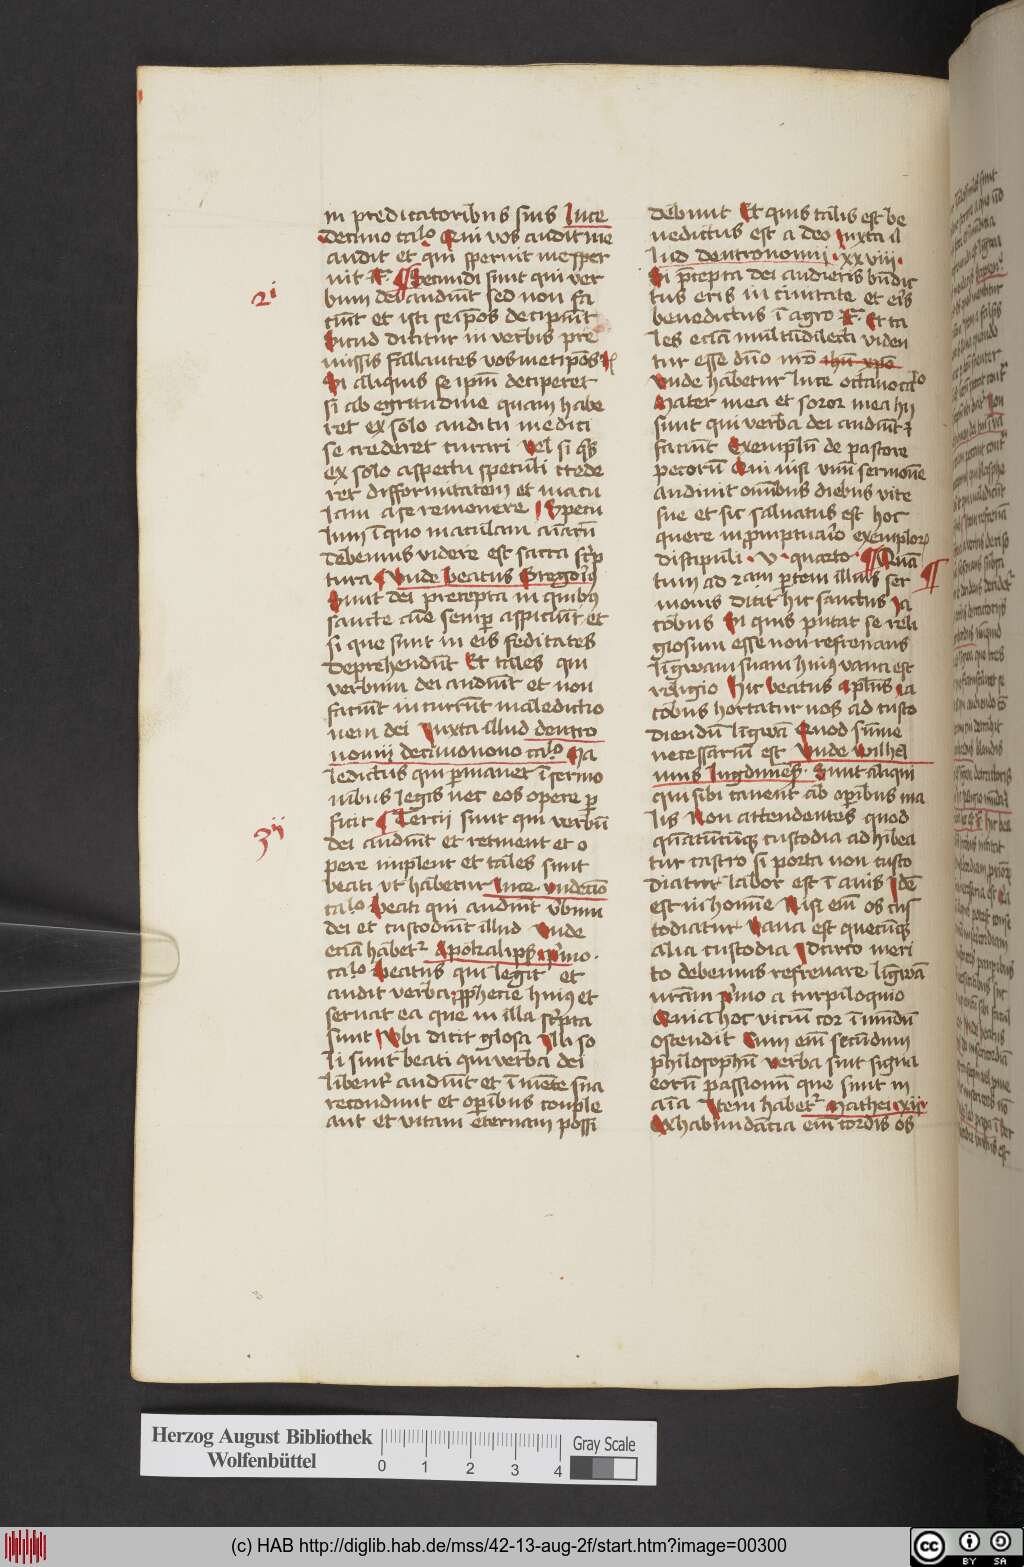 in predicatoribus suis Luce
decimo cal.o Qui vos audit me
audit et qui spernit me sper
nit Et ¶ Secundi sunt qui ver
2i
bum dei audiūt sed non fa
ciūt et isti seip̄os decipiūt
Sicud dicitur in verbis pre
missis fallantes vosmetip̄os
Si aliquis se ip̄m deciperet
si ab egritudine quam habe
ret ex solo auditu medici
se crederet curari Vel si q̄s
ex solo aspectu speculi crede
ret difformitatem et macu
lam a se removere Specu
lum ī quo maculam aīarū
debemus videre est sacra scp
tura Unde beatus Gregori9
Sunt dei precepta in quib9
sancte aīe semp aspiciūt et
si que sunt in eis feditates
deprehendūt Et tales qui
verbum dei audiūt et non
faciūt incurrūt maledictio
nem dei Juxta illud deutro
nomii decimonono cal.o Ma
ledictus qui pmanet ī sermo
nibus legis nec eos opere p
ficit ¶ Tercii sunt qui verbū
3ii
dei audiūt et retinent et o
pere implent et tales sunt
beati ut habetur Luce undecīo
cal.o Beati qui audiūt vbum
dei et custodiūt illud Unde
eciā habet Apokalips pimo
cal.o Beatus qui legit et
audit verba pphecie hui9 et
servat ea que in illa scpta
sunt Ubi dicit glosa Illi so
li sunt beati qui verba dei
libent audiūt et ī mēte sua
recondunt et opibus comple
ant et vitam eternam possi
debunt Et quis talis est be
nedictus est a deo Juxta il
lud deutronomii xxviii
Si pcepta dei audieris bn̄dic
tus eris in civitate et eris
benedictus ī agro Et Et ta
les eciā multū dilecti viden
tur esse dn̄o nr̄o ihu xpo
Unde habetur Luce octavo cal.o
Mater mea et soror mea hii
sunt qui verba dei audiūt et
faciūt Exemplū de pastore
pecorū Qui nisi unū sermonē
audivit omībus diebus vite
sue et sic salvatus est hoc
quere in pmptuaio exemplor
discipuli v quarto ¶ Quā
tum ad 2am ptem illius ser
monis dicit hic sanctus Ja
cobus Si quis putat se reli
giosum esse non refrenans
ligwam suam huius vana est
religio Hic beatus aplus Ja
cobus hortatur nos ad custo
diendū ligwā Quod sūme
necessariū est Unde Wilhel
mus Lugdunes Sunt aliqui
qui sibi cavent ab opibus ma
lis Non attendentes quod
quātūcūq custodia adhibea
tur castro si porta non custo
diatur labor est ī anis Idē
est in homīe Nisi em os cus
todiatur Vana est quecūq
alia custodia Idcirco meri
to debemus refrenare ligwā
nrām pimo a turpiloquio
Quia hoc viciū cor īmūdū
ostendit Cum em secūdum
philosophū verba sint signa
eorū passionū que sunt in
aīa Item habet Mathei xii
Ex habundācia em cordis os
Herzog August Bibliothek
Wolfenbüttel
0 1 2 3 4
Gray Scale
(c) HAB http://diglib.hab.de/mss/42-13-aug-2f/start.htm?image=00300
cc BY SA